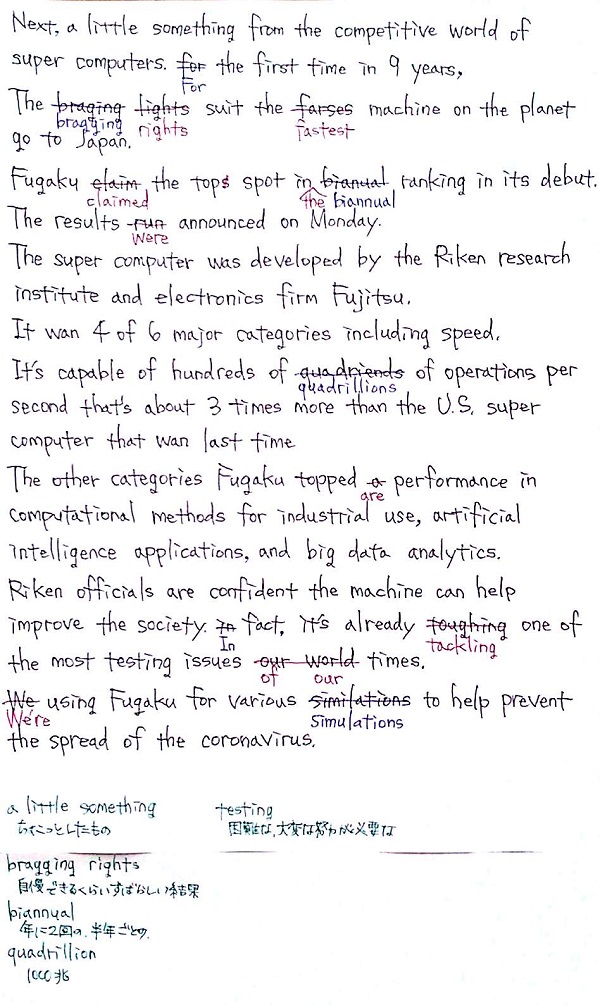 Next, a little something from the competitive world of
super computers. for the first time in 9 years,
For
The braging lights suit the farses machine on the planet
bragging rights fastest
go to Japan.
Fugaku claim the tops spot in bianual ranking in its debut.
claimed the biannual
The results run announced on Monday.
were
The super computer was developed by the Riken research
institute and electronics firm Fujitsu.
It wan 4 of 6 major categories including speed.
It's capable of hundreds of quadriends of operations per
quadrillions
second that's about 3 times more than the U.S. super
computer that wan last time
The other categories Fugaku topped a performance in
are
computational methods for industrial use, artificial
intelligence applications, and big data analytics.
Riken officials are confident the machine can help
improve the society. in fact, it's already toughing one of
In tackling
the most testing issues our world times.
of our
We using Fugaku for various similations to help prevent
We're simulations
the spread of the coronavirus.
a little something testing
ちょこっとしたもの 困難な、大変な努力が必要な
bragging rights
自慢できるくらいすばらしい結果
biannual
年に2回の、半年ごとの
quadrillion
1000兆